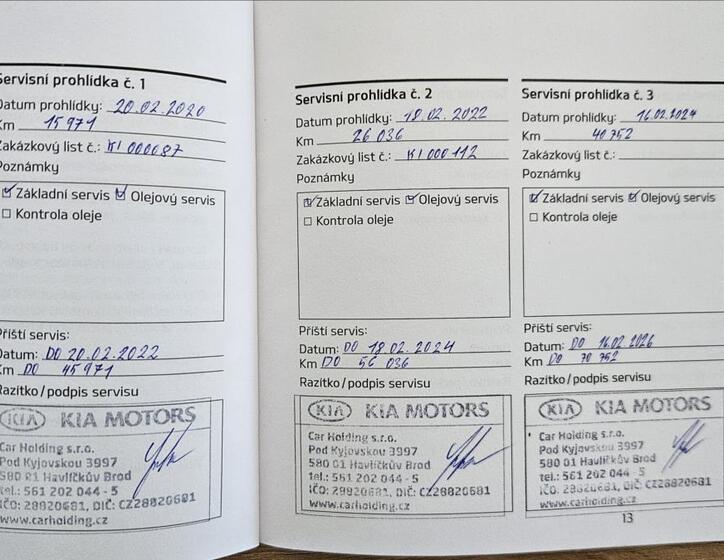 Servisní prohlídka č. 1
Datum prohlídky: 20.02.2020
Km 15 971
Zakázkový list č.: KI 000087
Poznámky
Základní servis Olejový servis
Kontrola oleje
Příští servis:
Datum: DO 20.02.2022
Km DO 45 971
Razítko/podpis servisu
KIA KIA MOTORS
Car Holding s.r.o.
Pod Kyjovskou 3997
580 01 Havlíčkův Brod
tel.: 561 202 044 - 5
IČO: 28820681, DIČ: CZ28820681
www.carholding.cz
Servisní prohlídka č. 2
Datum prohlídky: 18.02.2022
Km 26 036
Zakázkový list č.: KI 000 112
Poznámky
Základní servis Olejový servis
Kontrola oleje
Příští servis:
Datum: DO 18.02.2024
Km DO 56 036
Razítko/podpis servisu
KIA KIA MOTORS
Car Holding s.r.o.
Pod Kyjovskou 3997
580 01 Havlíčkův Brod
tel.: 561 202 044 - 5
IČO: 28820681, DIČ: CZ28820681
www.carholding.cz
Servisní prohlídka č. 3
Datum prohlídky: 16.02.2024
Km 40 752
Zakázkový list č.:
Poznámky
Základní servis Olejový servis
Kontrola oleje
Příští servis:
Datum: DO 16.02 2026
Km DO 70 752
Razítko/podpis servisu
KIA KIA MOTORS
Car Holding s.r.o.
Pod Kyjovskou 3997
580 01 Havlíčkův Brod
tel.: 561 202 044 - 5
IČO: 28820681, DIČ: CZ28820681
www.carholding.cz
13